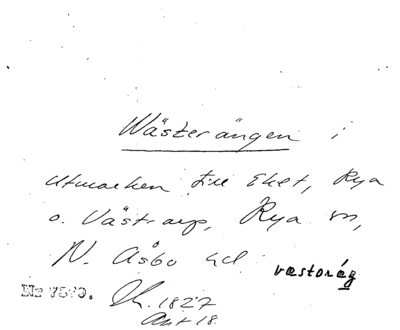 Wästerängen i
utmarken till Eket, Rya
o. Västrarp, Rya sn,
N. Åsbo hd.
væstoræ̨g
Nr 7870.
Ch. 1827
Akt 18.